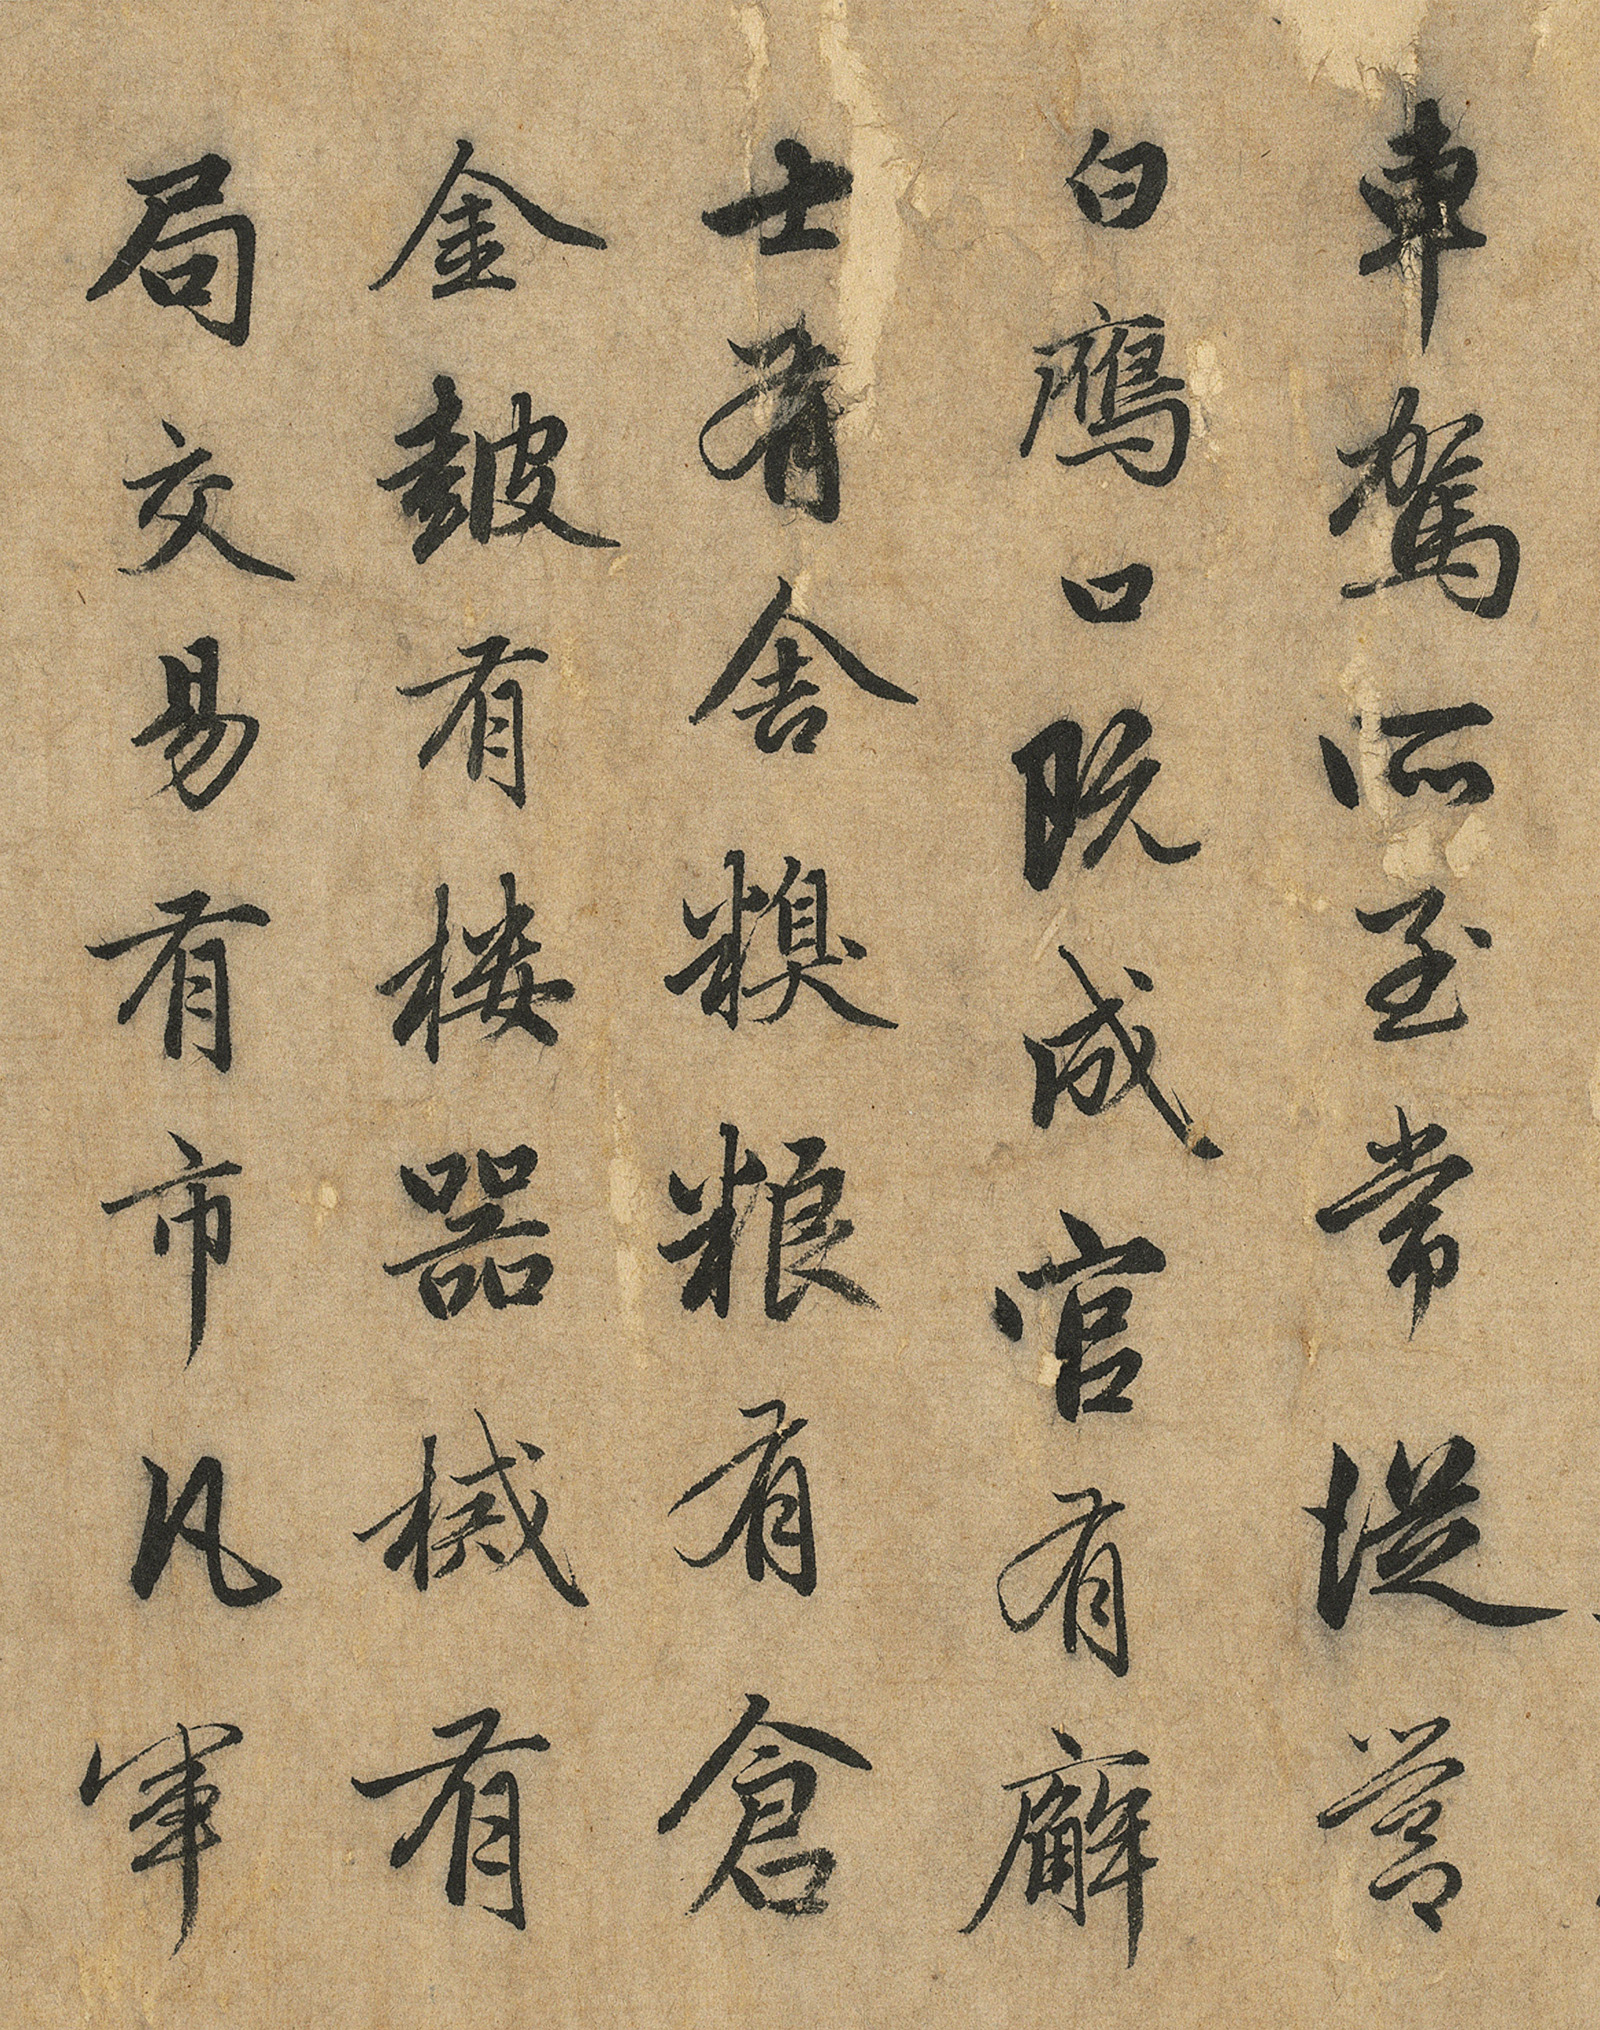 車駕所至常從營
白鴈口既成官有廨
士有舍糗粮有倉
金鼓有楼器械有
局交易有市凡軍